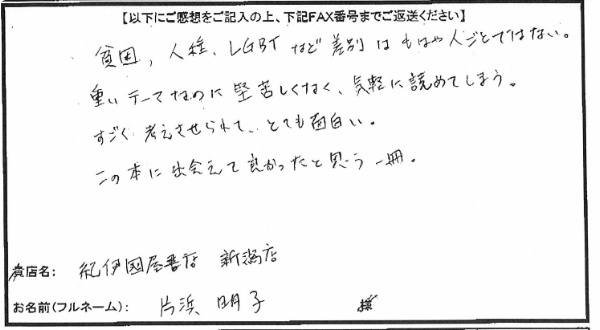 【以下にご感想をご記入の上、下記FAX番号までご返送ください】
貧困、人種、LGBTなど差別はもはや人ごとではない。
重いテーマなのに堅苦しくなく、気軽に読めてしまう。
すごく考えさせられて、とても面白い。
この本に出会えて良かったと思う一冊。
貴店名： 紀伊國屋書店 新潟店
お名前(フルネーム)： 片浜 明子 様